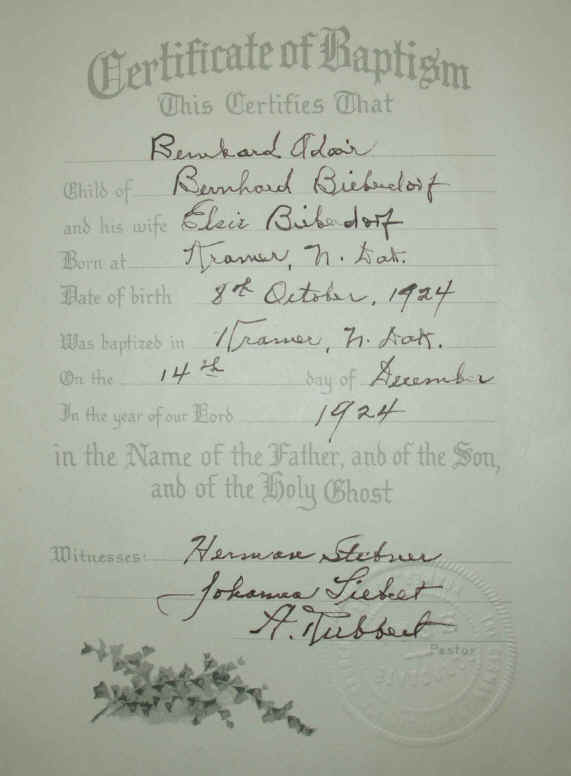 Certificate of Baptism
This Certifies That
Bernhard Adair
Child of Bernhard Bieberdorf
and his wife Elsie Bieberdorf
Born at Kramer, N. Dak.
Date of birth 8th October, 1924
Was baptized in Kramer, N. Dak.
On the 14th day of December
In the year of our Lord 1924
in the Name of the Father, and of the Son,
and of the Holy Ghost
Witnesses: Herman Stebner
Johanna Siebert
A.
Pastor